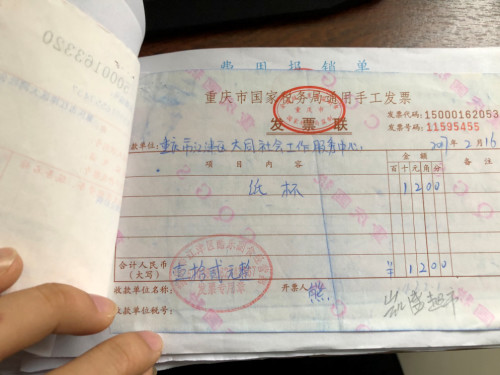 00163320
费用报销单
重庆市国家税务局通用手工发票
发票联
发票代码: 15000162053
发票号码: 11595455
款单位: 重庆市江津区大同社会工作服务中心 2017年2月16
项目内容 金额 备注
百十元角分
纸杯 1200
合计人民币(大写) 壹拾贰元整 ¥1200
收款单位名称: 开票人: 熊
收款单位税号:
发票专用章
盛超市